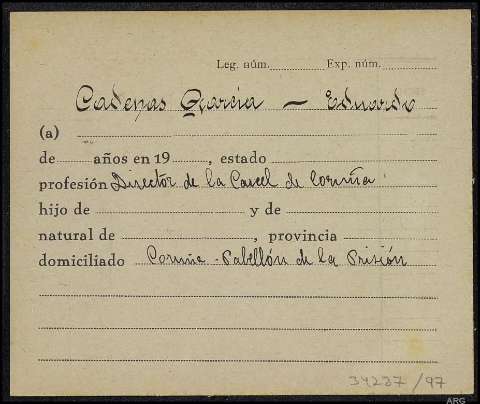 Leg. núm. Exp. núm.
Cadenas García — Eduardo
(a)
de años en 19 , estado
profesión Director de la Carcel de Coruña
hijo de y de
natural de , provincia
domiciliado Coruña - Pabellón de la Prisión
34237/97
ARG